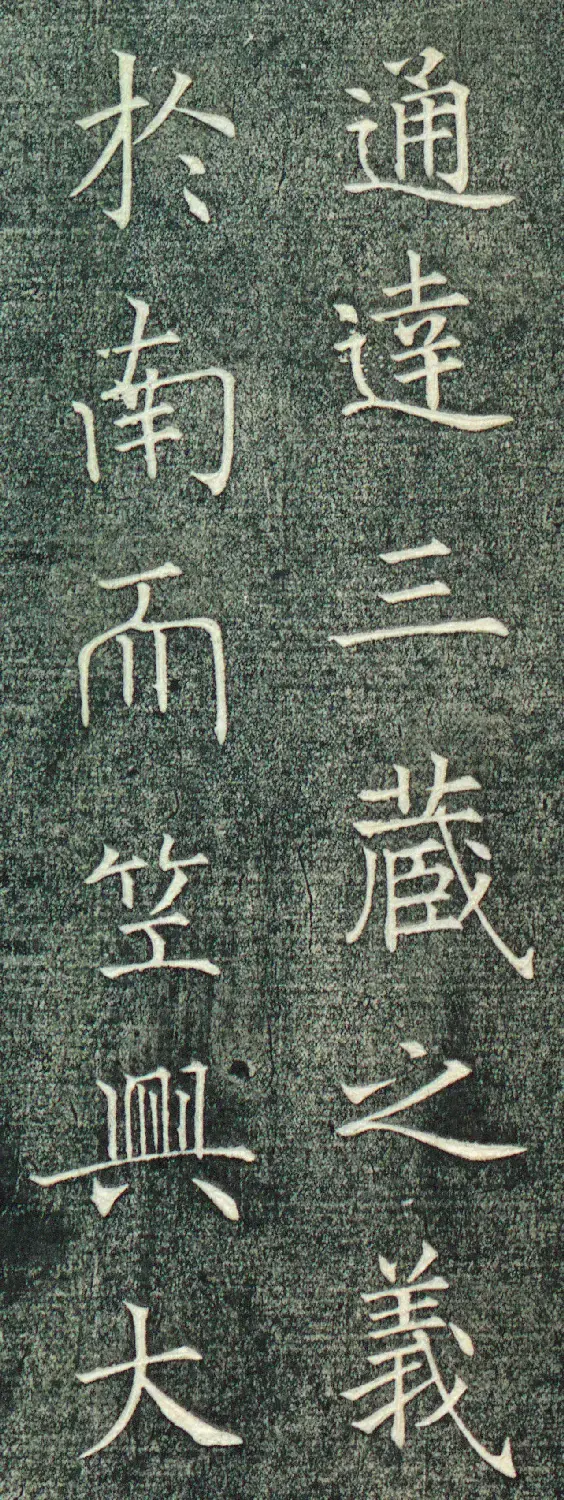 通達三藏之義
於南而竺興大